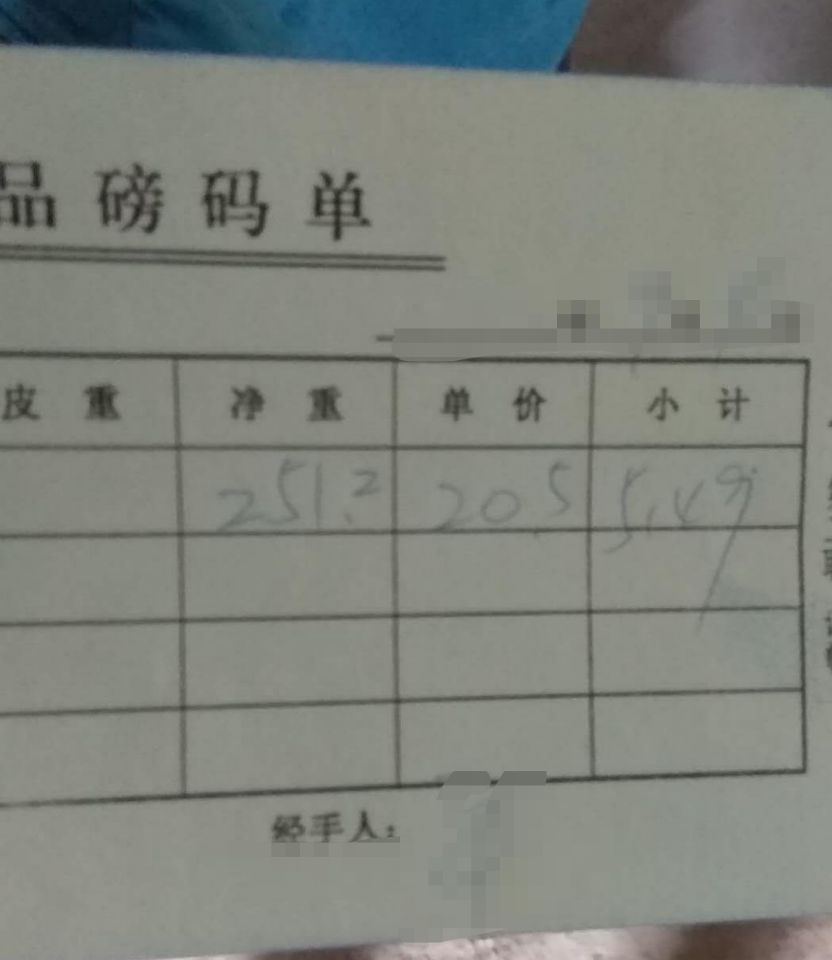 品磅码单
皮重 净重 单价 小计
251.2 20.5 5149
经手人：